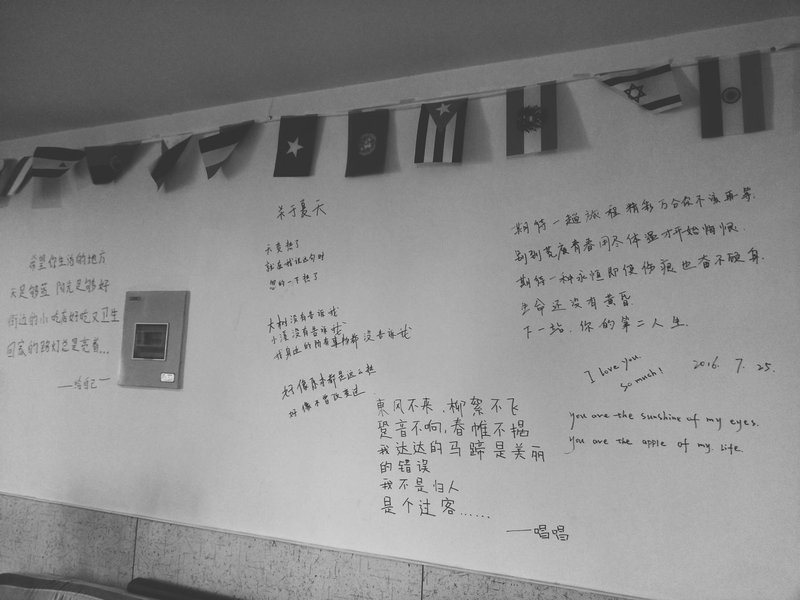 希望你生活的地方
天足够蓝 阳光足够好
街边的小吃店好吃又卫生
回家的路灯总是亮着...
——给自己——
关于夏天
天变热了
就在我说这句时
忽的一下热了
大树没有告诉我
小溪没有告诉我
我身边的所有事物都没告诉我
好像原本都是这么热
好像不曾改变过
東风不来,柳絮不飞
跫音不响,春帷不揭
我达达的马蹄是美丽
的错误
我不是归人
是个过客......
——唱唱
期待一趟旅程精彩万分你不该再等.
别到荒废青春闭不体温才开始悔恨.
期待一种永恒即使伤痕也奋不顾身.
生命还没有黄昏.
下一站,你的第二人生.
I love you
so much!
2016. 7. 25.
you are the sunshine of my eyes.
you are the apple of my life.